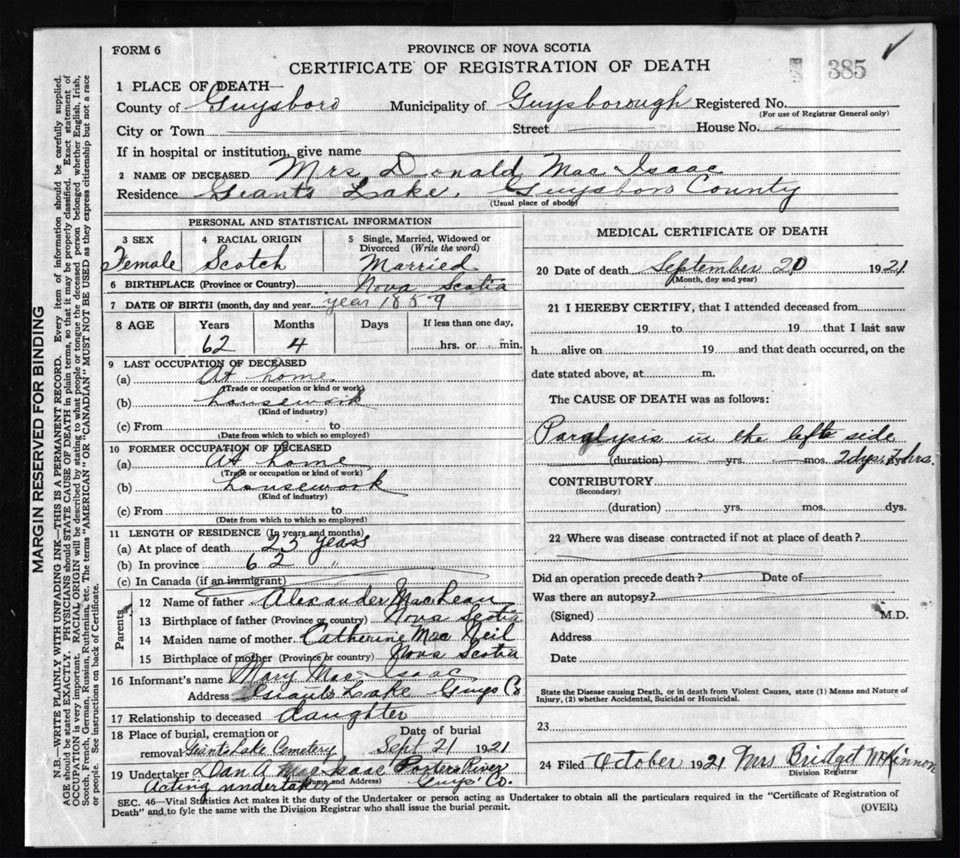 FORM 6
PROVINCE OF NOVA SCOTIA
CERTIFICATE OF REGISTRATION OF DEATH
385
1 PLACE OF DEATH—
County of Guysboro Municipality of Guysborough Registered No.
(For use of Registrar General only)
City or Town Street House No.
If in hospital or institution, give name
2 NAME OF DECEASED Mrs Donald Mac Isaac
Residence Giants Lake, Guysboro County
(Usual place of abode)
PERSONAL AND STATISTICAL INFORMATION
3 SEX
Female
4 RACIAL ORIGIN
Scotch
5 Single, Married, Widowed or
Divorced (Write the word)
Married
6 BIRTHPLACE (Province or Country) Nova Scotia
7 DATE OF BIRTH (month, day and year) year 1859
8 AGE Years Months Days If less than one day,
62 4 hrs. or min.
9 LAST OCCUPATION OF DECEASED
(a) At home
(Trade or occupation or kind of work)
(b) housework
(Kind of industry)
(c) From to
(Date from which to which so employed)
10 FORMER OCCUPATION OF DECEASED
(a) At home
(Trade or occupation or kind of work)
(b) housework
(Kind of industry)
(c) From to
(Date from which to which so employed)
11 LENGTH OF RESIDENCE (In years and months)
(a) At place of death 23 years
(b) In province 62 "
(c) In Canada (if an immigrant)
Parents
12 Name of father Alexander MacLean
13 Birthplace of father (Province or country) Nova Scotia
14 Maiden name of mother Catherine Mac Neil
15 Birthplace of mother (Province or country) Nova Scotia
16 Informant's name Mary Mac Isaac
Address Giants Lake Guys Co
17 Relationship to deceased daughter
18 Place of burial, cremation or Date of burial
removal Giants Lake Cemetery Sept 21 1921
19 Undertaker Dan A MacIsaac Porters River
(Name and Address)
Acting undertaker Guys' Co.
MEDICAL CERTIFICATE OF DEATH
20 Date of death September 20 1921
(Month, day and year)
21 I HEREBY CERTIFY, that I attended deceased from
19 to 19 that I last saw
h alive on 19 and that death occurred, on the
date stated above, at m.
The CAUSE OF DEATH was as follows:
Paralysis in the left side
(duration) yrs. mos. 2 dys. hrs.
CONTRIBUTORY
(Secondary)
(duration) yrs. mos. dys.
22 Where was disease contracted if not at place of death?
Did an operation precede death? Date of
Was there an autopsy?
(Signed) M.D.
Address
Date
State the Disease causing Death, or in death from Violent Causes, state (1) Means and Nature of
Injury, (2) whether Accidental, Suicidal or Homicidal.
23
24 Filed October 1921 Mrs Bridget McKinnon
Division Registrar
SEC. 46—Vital Statistics Act makes it the duty of the Undertaker or person acting as Undertaker to obtain all the particulars required in the "Certificate of Registration of
Death" and to fyle the same with the Division Registrar who shall issue the burial permit.
(OVER)
MARGIN RESERVED FOR BINDING
N.B.—WRITE PLAINLY WITH UNFADING INK—THIS IS A PERMANENT RECORD. Every item of information should be carefully supplied.
AGE should be stated EXACTLY. PHYSICIANS should STATE CAUSE OF DEATH in plain terms, so that it may be properly classified. Exact statement of
OCCUPATION is very important. RACIAL ORIGIN will be described by stating to what people or tongue the deceased person belonged whether English, Irish,
Scotch, French, German, Russian, Ruthenian, etc. The terms "AMERICAN" OR "CANADIAN" MUST NOT BE USED as they express citizenship but not a race
or people. See instructions on back of Certificate.